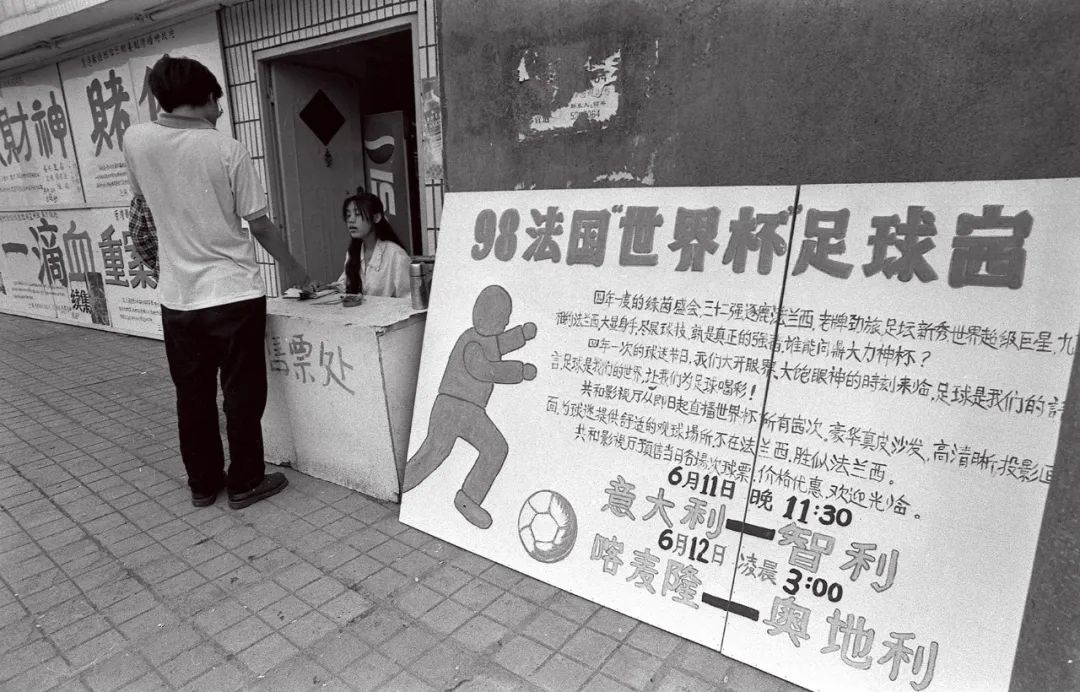 財神
賭
一滴血
重案
续集
售票处
98法国"世界杯"足球
四年一度的绿茵盛会,三十二强逐鹿法兰西,老牌劲旅,足坛新秀,世界超级巨星,九
相约法兰西大显身手,尽展球技,孰是真正的强者,谁能问鼎大力神杯?
四年一次的球迷节日,我们大开眼界,大饱眼神的時刻来临,足球是我们的語
言,足球是我们的世界,让我们为足球喝彩!
共和影视厅从即日起直播世界杯所有 次,豪华真皮沙发,高清晰投影画
面,为球迷提供舒适的观球场所,不在法兰西,胜似法兰西。
共和影视厅预售当日各場次球票,价格优惠,欢迎光临。
6月11日 晚 11:30
意大利—智利
6月12日 凌晨 3:00
喀麦隆—奥地利